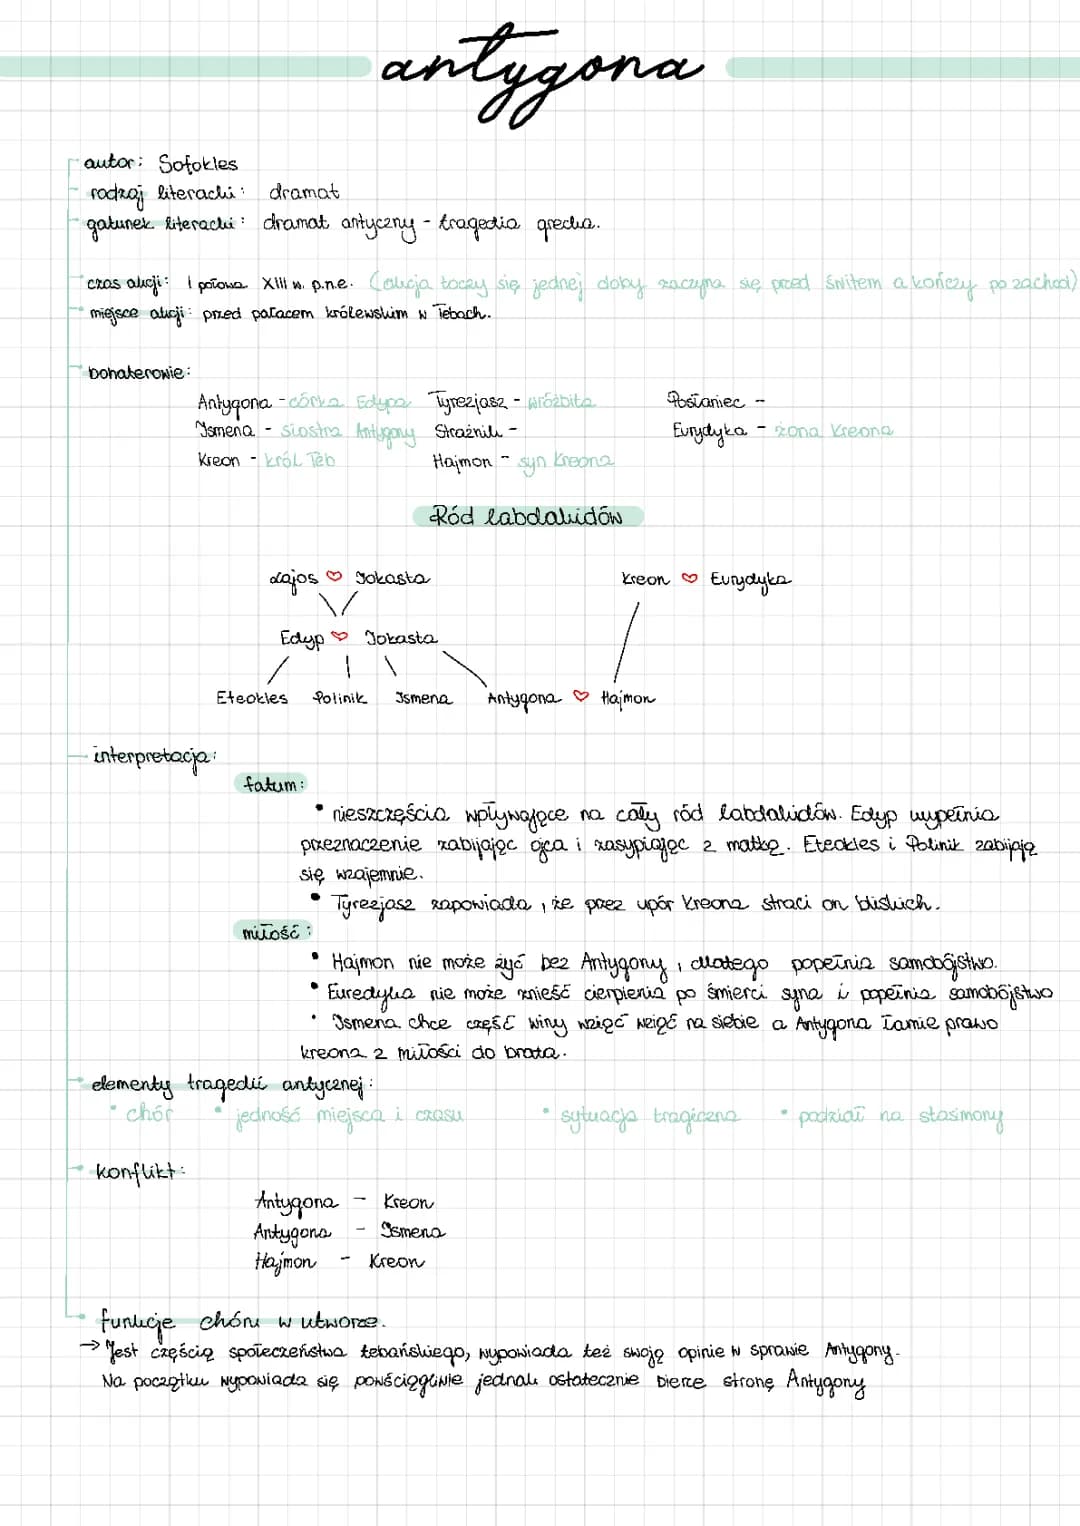 antygona
autor: Sofokles
rodzaj literacki: dramat
gatunek literacki: dramat antyczny - tragedia grecka.
czas akcji: I połowa XIII w. p.n.e. (akcja toczy się jednej doby zaczyna się przed świtem a kończy po zachod)
miejsce akcji: przed pałacem królewskim w Tebach.
bohaterowie:
Antygona - córka Edypa Tyrezjasz - wróżbita Posłaniec -
Ismena - siostra Antygony Strażnik - Eurydyka - żona Kreona
Kreon - król Teb Hajmon - syn Kreona
Ród labdakidów
Lajos ♡ Jokasta Kreon ♡ Eurydyka
Edyp ♡ Jokasta
Eteokles Polinik Ismena Antygona ♡ Hajmon
interpretacja:
fatum:
• nieszczęścia wpływające na cały ród labdakidów. Edyp wypełnia
przeznaczenie zabijając ojca i zasypiając z matką. Eteokles i Polinik zabijają
się wzajemnie.
• Tyrezjasz zapowiada, że przez upór Kreona straci on bliskich.
miłość:
• Hajmon nie może żyć bez Antygony, dlatego popełnia samobójstwo.
• Euredyka nie może znieść cierpienia po śmierci syna i popełnia samobójstwo
• Ismena chce część winy wziąć wziąć na siebie a Antygona łamie prawo
kreona z miłości do brata.
elementy tragedii antycznej:
• chór • jedność miejsca i czasu • sytuacja tragiczna • podział na stasimony
konflikt:
Antygona - Kreon
Antygona - Ismena
Hajmon - Kreon
funkcje chóru w utworze.
→ Jest częścią społeczeństwa tebańskiego, wypowiada też swoją opinie w sprawie Antygony.
Na początku wypowiada się powściągliwie jednak ostatecznie bierze stronę Antygony